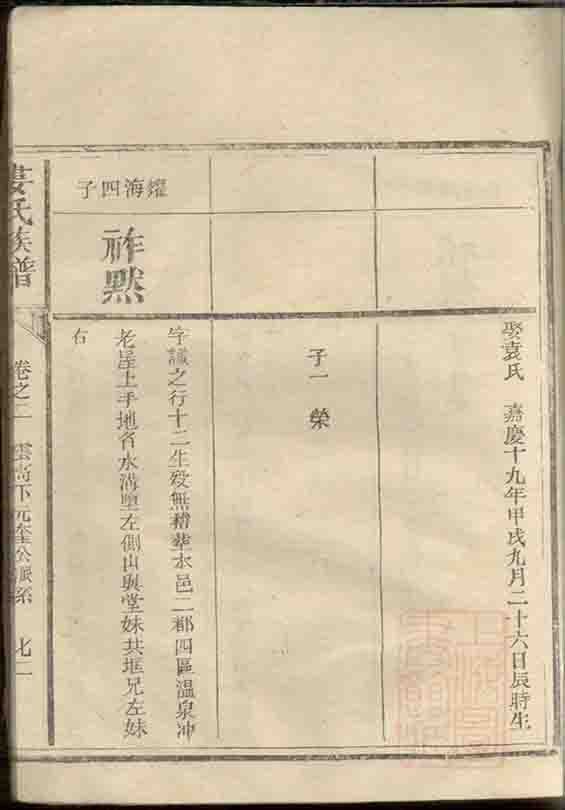 娶袁氏 嘉慶十九年甲戌九月二十六日辰時生
子一榮
燿海四子
祚黙
字謙之行十二生歿無稽塟水邑二都四區溫泉冲
老屋上手地名水溝壟左側山與堂妹共堆兄左妹
右
婁氏族譜
卷之二 雲尚下元奎公派系 七二